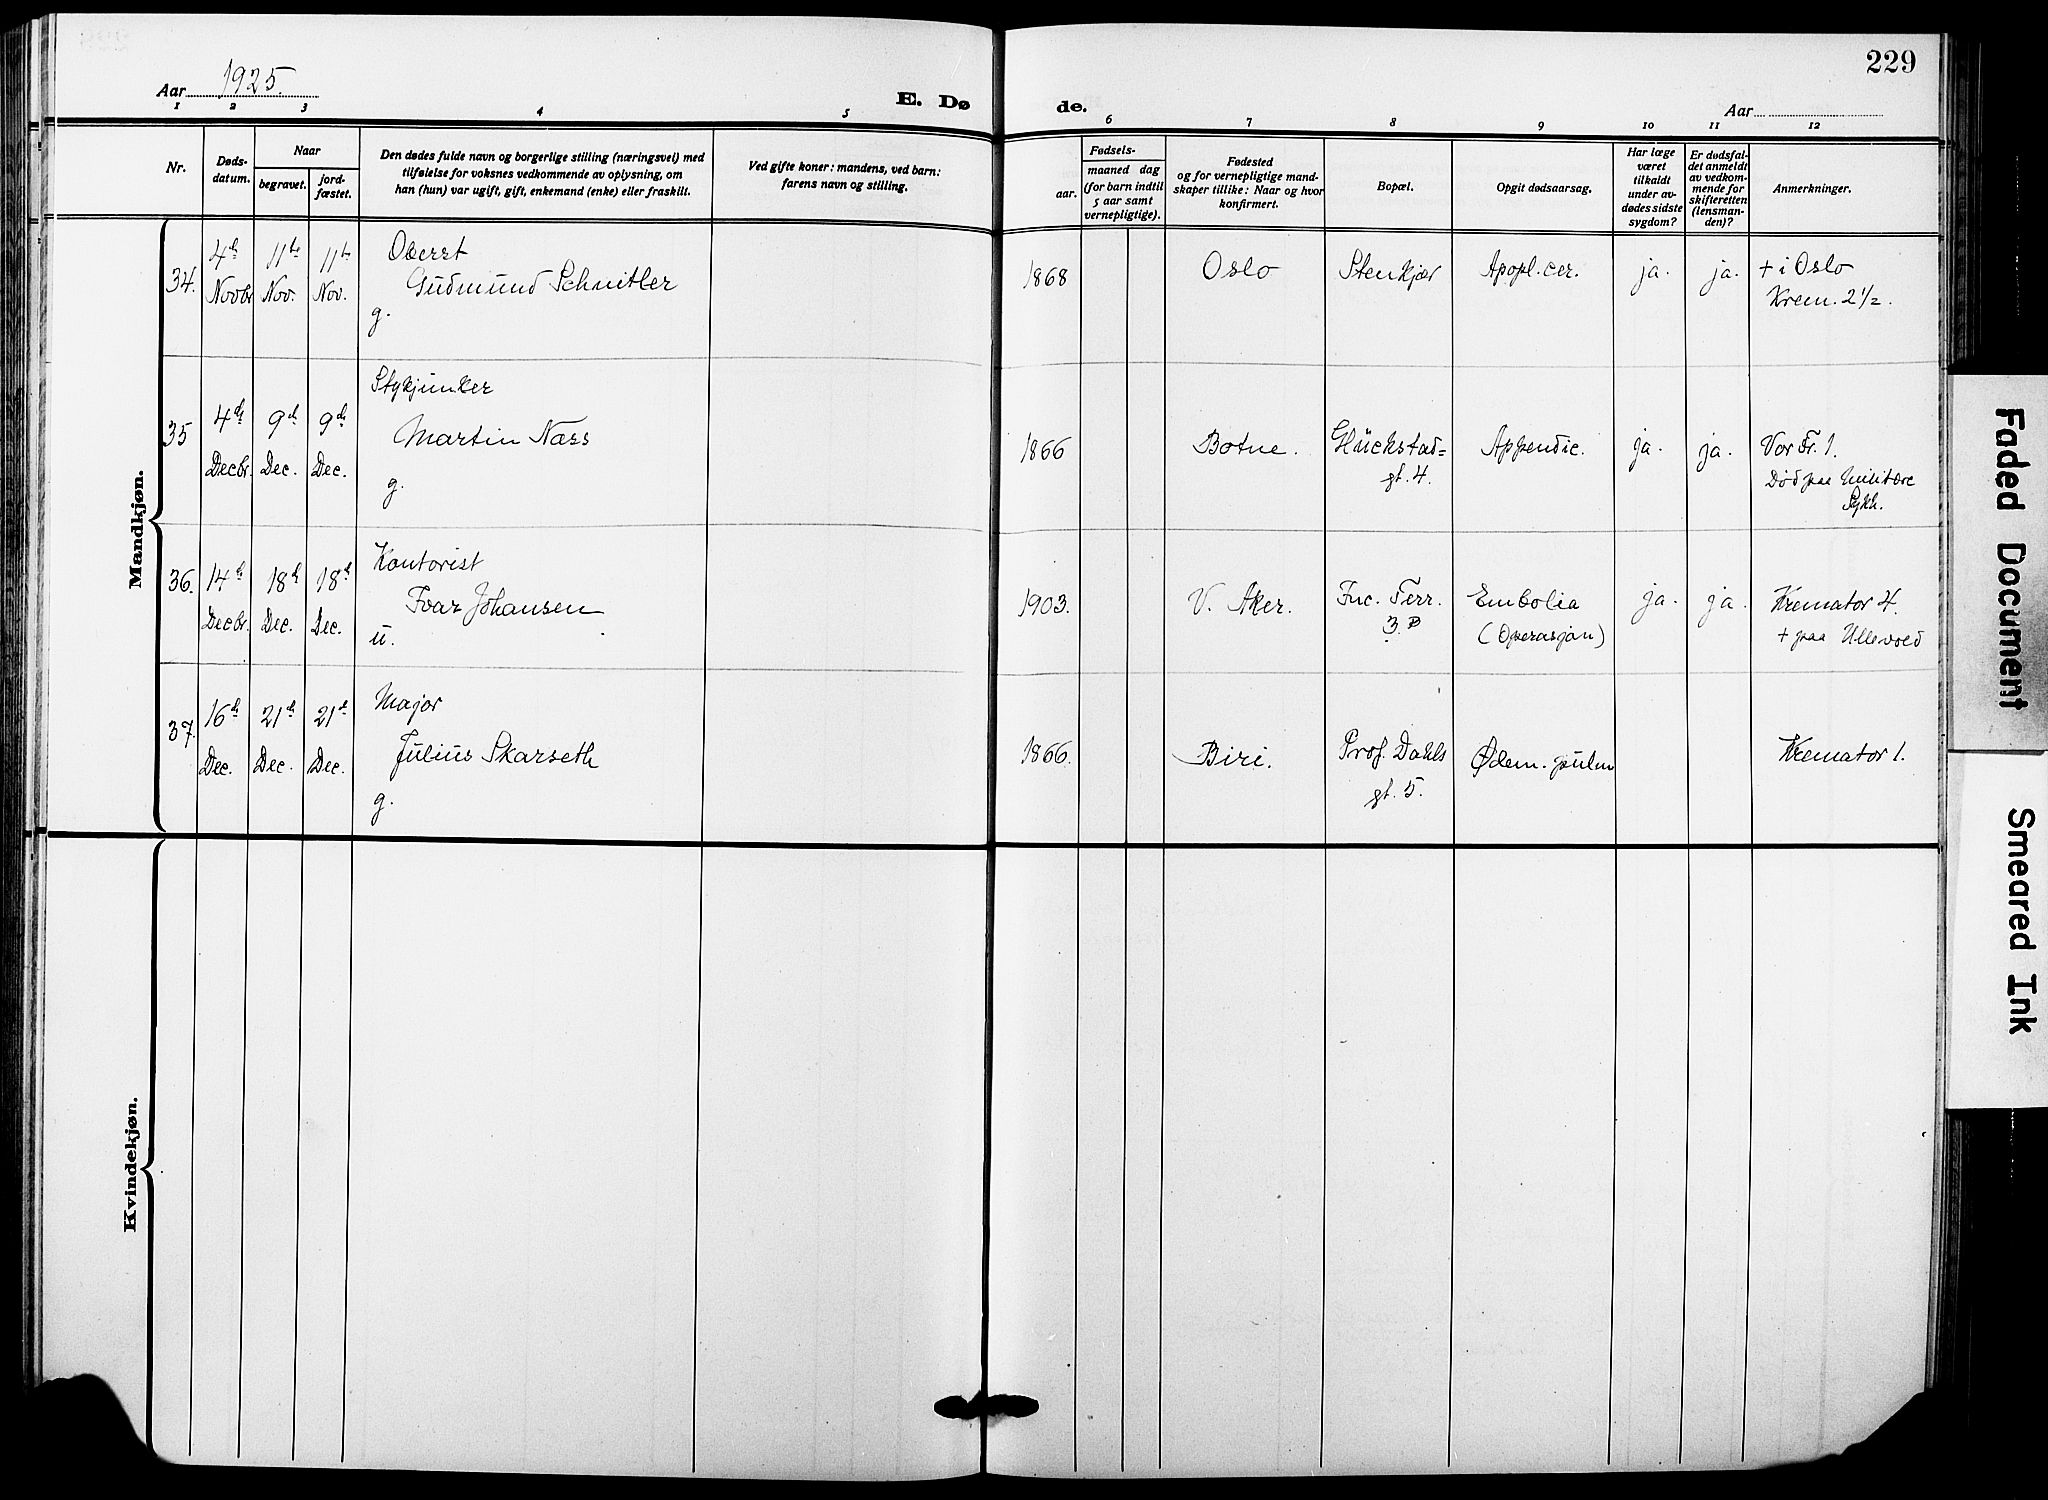 229
Aar 1925.
E. Dø
de.
Aar
1 2 3 4 5 6 7 8 9 10 11 12
Nr.
Døds-
datum.
Naar
begravet.
jord-
fæstet.
Den dødes fulde navn og borgerlige stilling (næringsvei) med
tilføielse for voksnes vedkommende av oplysning, om
han (hun) var ugift, gift, enkemand (enke) eller fraskilt.
Ved gifte koner: mandens, ved barn:
farens navn og stilling.
Fødsels-
aar.
maaned dag
(for barn indtil
5 aar samt
vernepligtige).
Fødested
og for vernepligtige mand-
skaper tillike: Naar og hvor
konfirmert.
Bopæl.
Opgit dødsaarsag.
Har læge
været
tilkaldt
under av-
dødes sidste
sygdom?
Er dødsfal-
det anmeldt
av vedkom-
mende for
skifteretten
(lensman-
den)?
Anmerkninger.
Mandkjøn.
34.
4de
Novbr.
11te
Nov.
11te
Nov.
Oberst
Gudmund Schnitler
g.
1868
Oslo
Stenkjær
Apopl. cer.
ja.
ja.
+ i Oslo
Krem. 2 1/2.
35
4de
Decbr.
9de
Dec.
9de
Dec.
Stykjunker
Martin Næss
g.
1866
Botne.
Glückstad=
gt. 4.
Appendic.
ja.
ja.
Vor Fr. 1.
Død paa Militære
Sykh.
36.
14de
Decbr.
18de
Dec.
18de
Dec.
Kontorist
Ivar Johansen
u.
1903.
V. Aker.
Inc. Terr.
3.B
Embolia
(Operasjon)
ja.
ja.
Kremator 4.
+ paa Ullevold
37.
16de
Dec.
21de
Dec.
21de
Dec.
Major
Julius Skarseth
g.
1866.
Biri.
Prof. Dahls
gt. 5.
Ødem. pulm
Kremator 1.
Kvindekjøn.
Faded Document
Smeared Ink